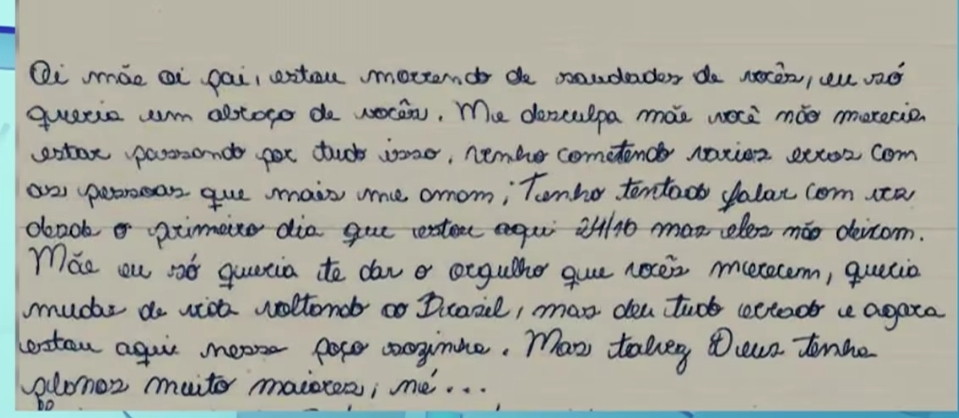 Oi mãe oi pai, estou morrendo de saudades de vocês, eu só
queria um abraço de vocês. Me desculpa mãe você não merecia
estar passando por tudo isso, venho cometendo varios erros com
as pessoas que mais me amam; Tenho tentado falar com vcs
desde o primeiro dia que estou aqui 24/10 mas eles não deixam.
Mãe eu só queria te dar o orgulho que vocês merecem, queria
mudar de vida voltando ao Brasil, mas deu tudo errado e agora
estou aqui nesse poço sozinha. Mas talvez Deus tenha
planos muito maiores, né...